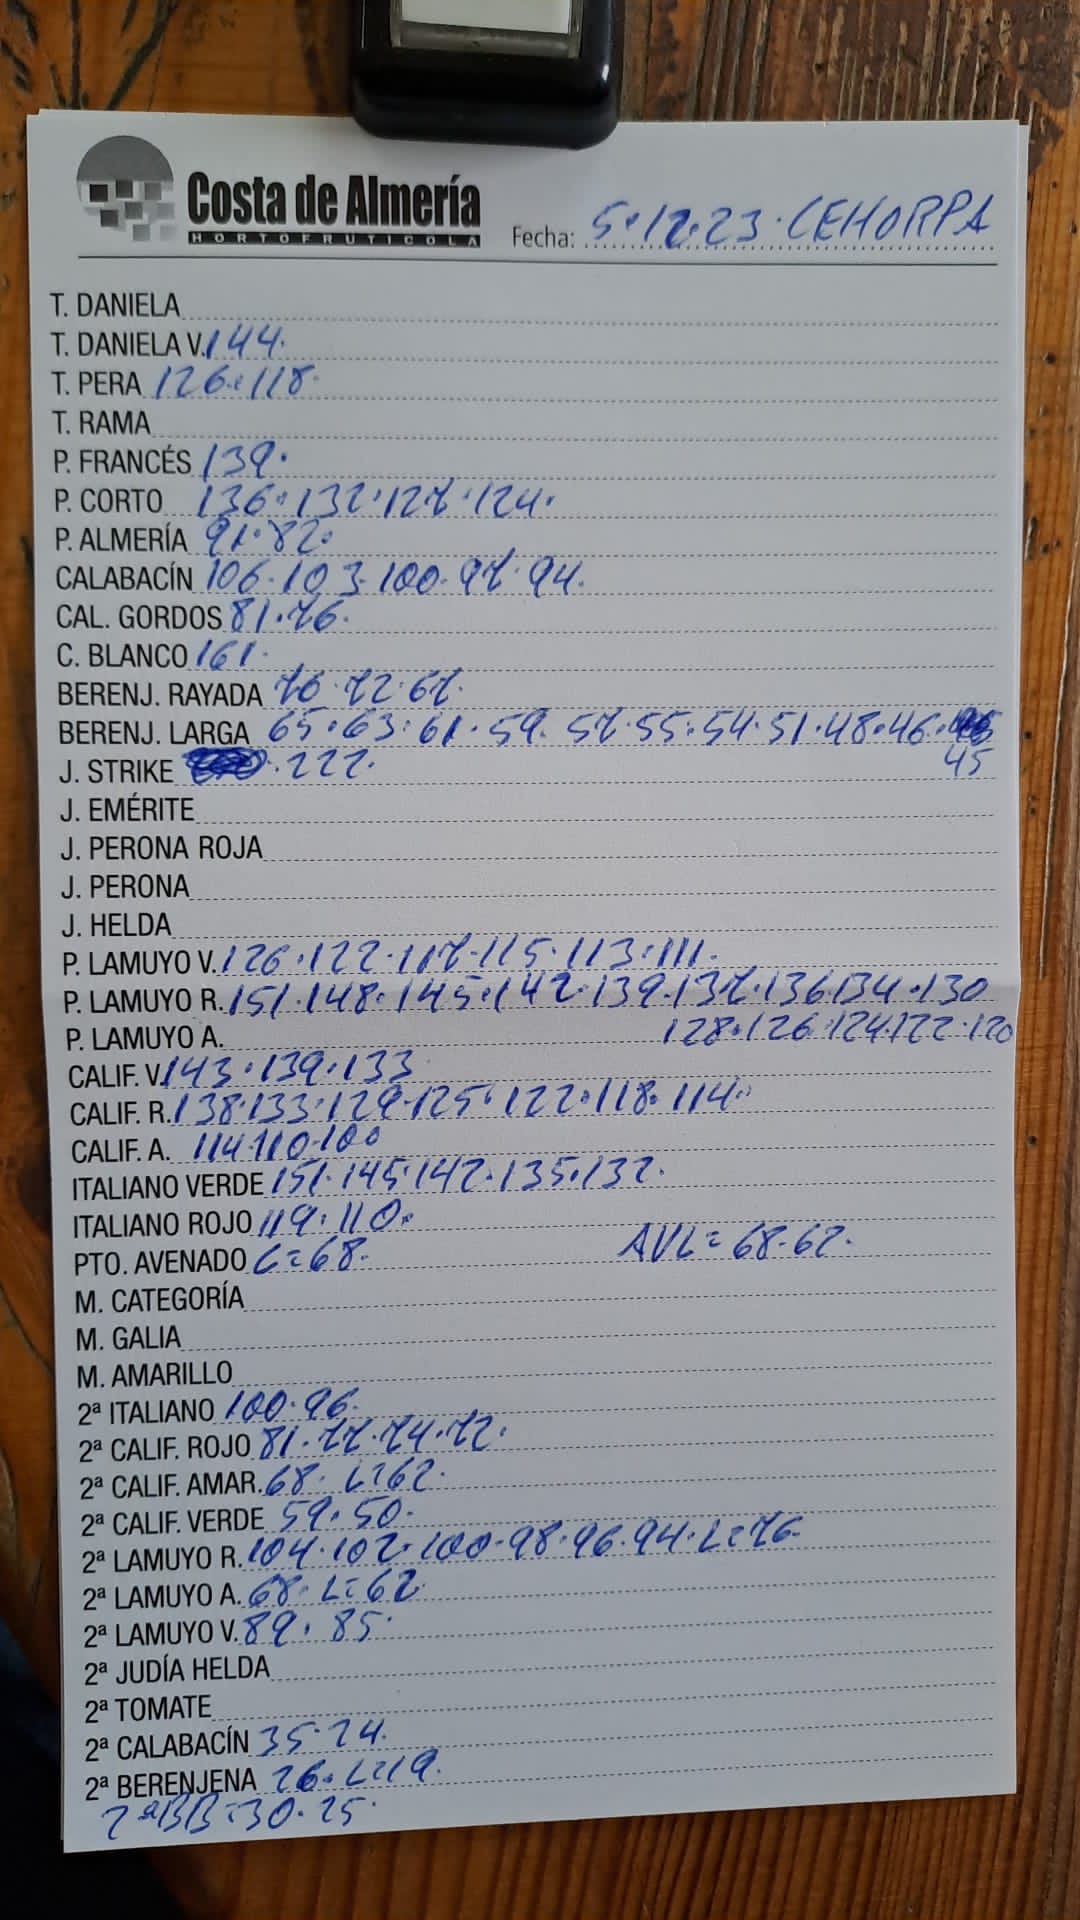 Costa de Almería
HORTOFRUTICOLA
Fecha: 5.12.23. CEHORPA
T. DANIELA
T. DANIELA V. 144.
T. PERA 126.118.
T. RAMA
P. FRANCÉS 139.
P. CORTO 136.132.127.124.
P. ALMERÍA 91.82.
CALABACÍN 106.103.100.97.94.
CAL. GORDOS 81.76.
C. BLANCO 161.
BERENJ. RAYADA 76.72.67.
BERENJ. LARGA 65.63.61.59.57.55.54.51.48.46.
45
J. STRIKE .222.
J. EMÉRITE
J. PERONA ROJA
J. PERONA
J. HELDA
P. LAMUYO V. 126.122.117.115.113.111.
P. LAMUYO R. 151.148.145.142.139.137.136.134.130
P. LAMUYO A. 128.126.124.122.120
CALIF. V. 143.139.133
CALIF. R. 138.133.129.125.122.118.114.
CALIF. A. 114.110.100
ITALIANO VERDE 151.145.142.135.132.
ITALIANO ROJO 119.110.
PTO. AVENADO L=68. AVL=68.62.
M. CATEGORÍA
M. GALIA
M. AMARILLO
2ª ITALIANO 100.96.
2ª CALIF. ROJO 81.77.74.72.
2ª CALIF. AMAR. 68. L=62.
2ª CALIF. VERDE 59.50.
2ª LAMUYO R. 104.102.100.98.96.94.L=76.
2ª LAMUYO A. 68.L=62.
2ª LAMUYO V. 89.85.
2ª JUDÍA HELDA
2ª TOMATE
2ª CALABACÍN 35.24.
2ª BERENJENA 26.L=19.
2ªBB=30.25.